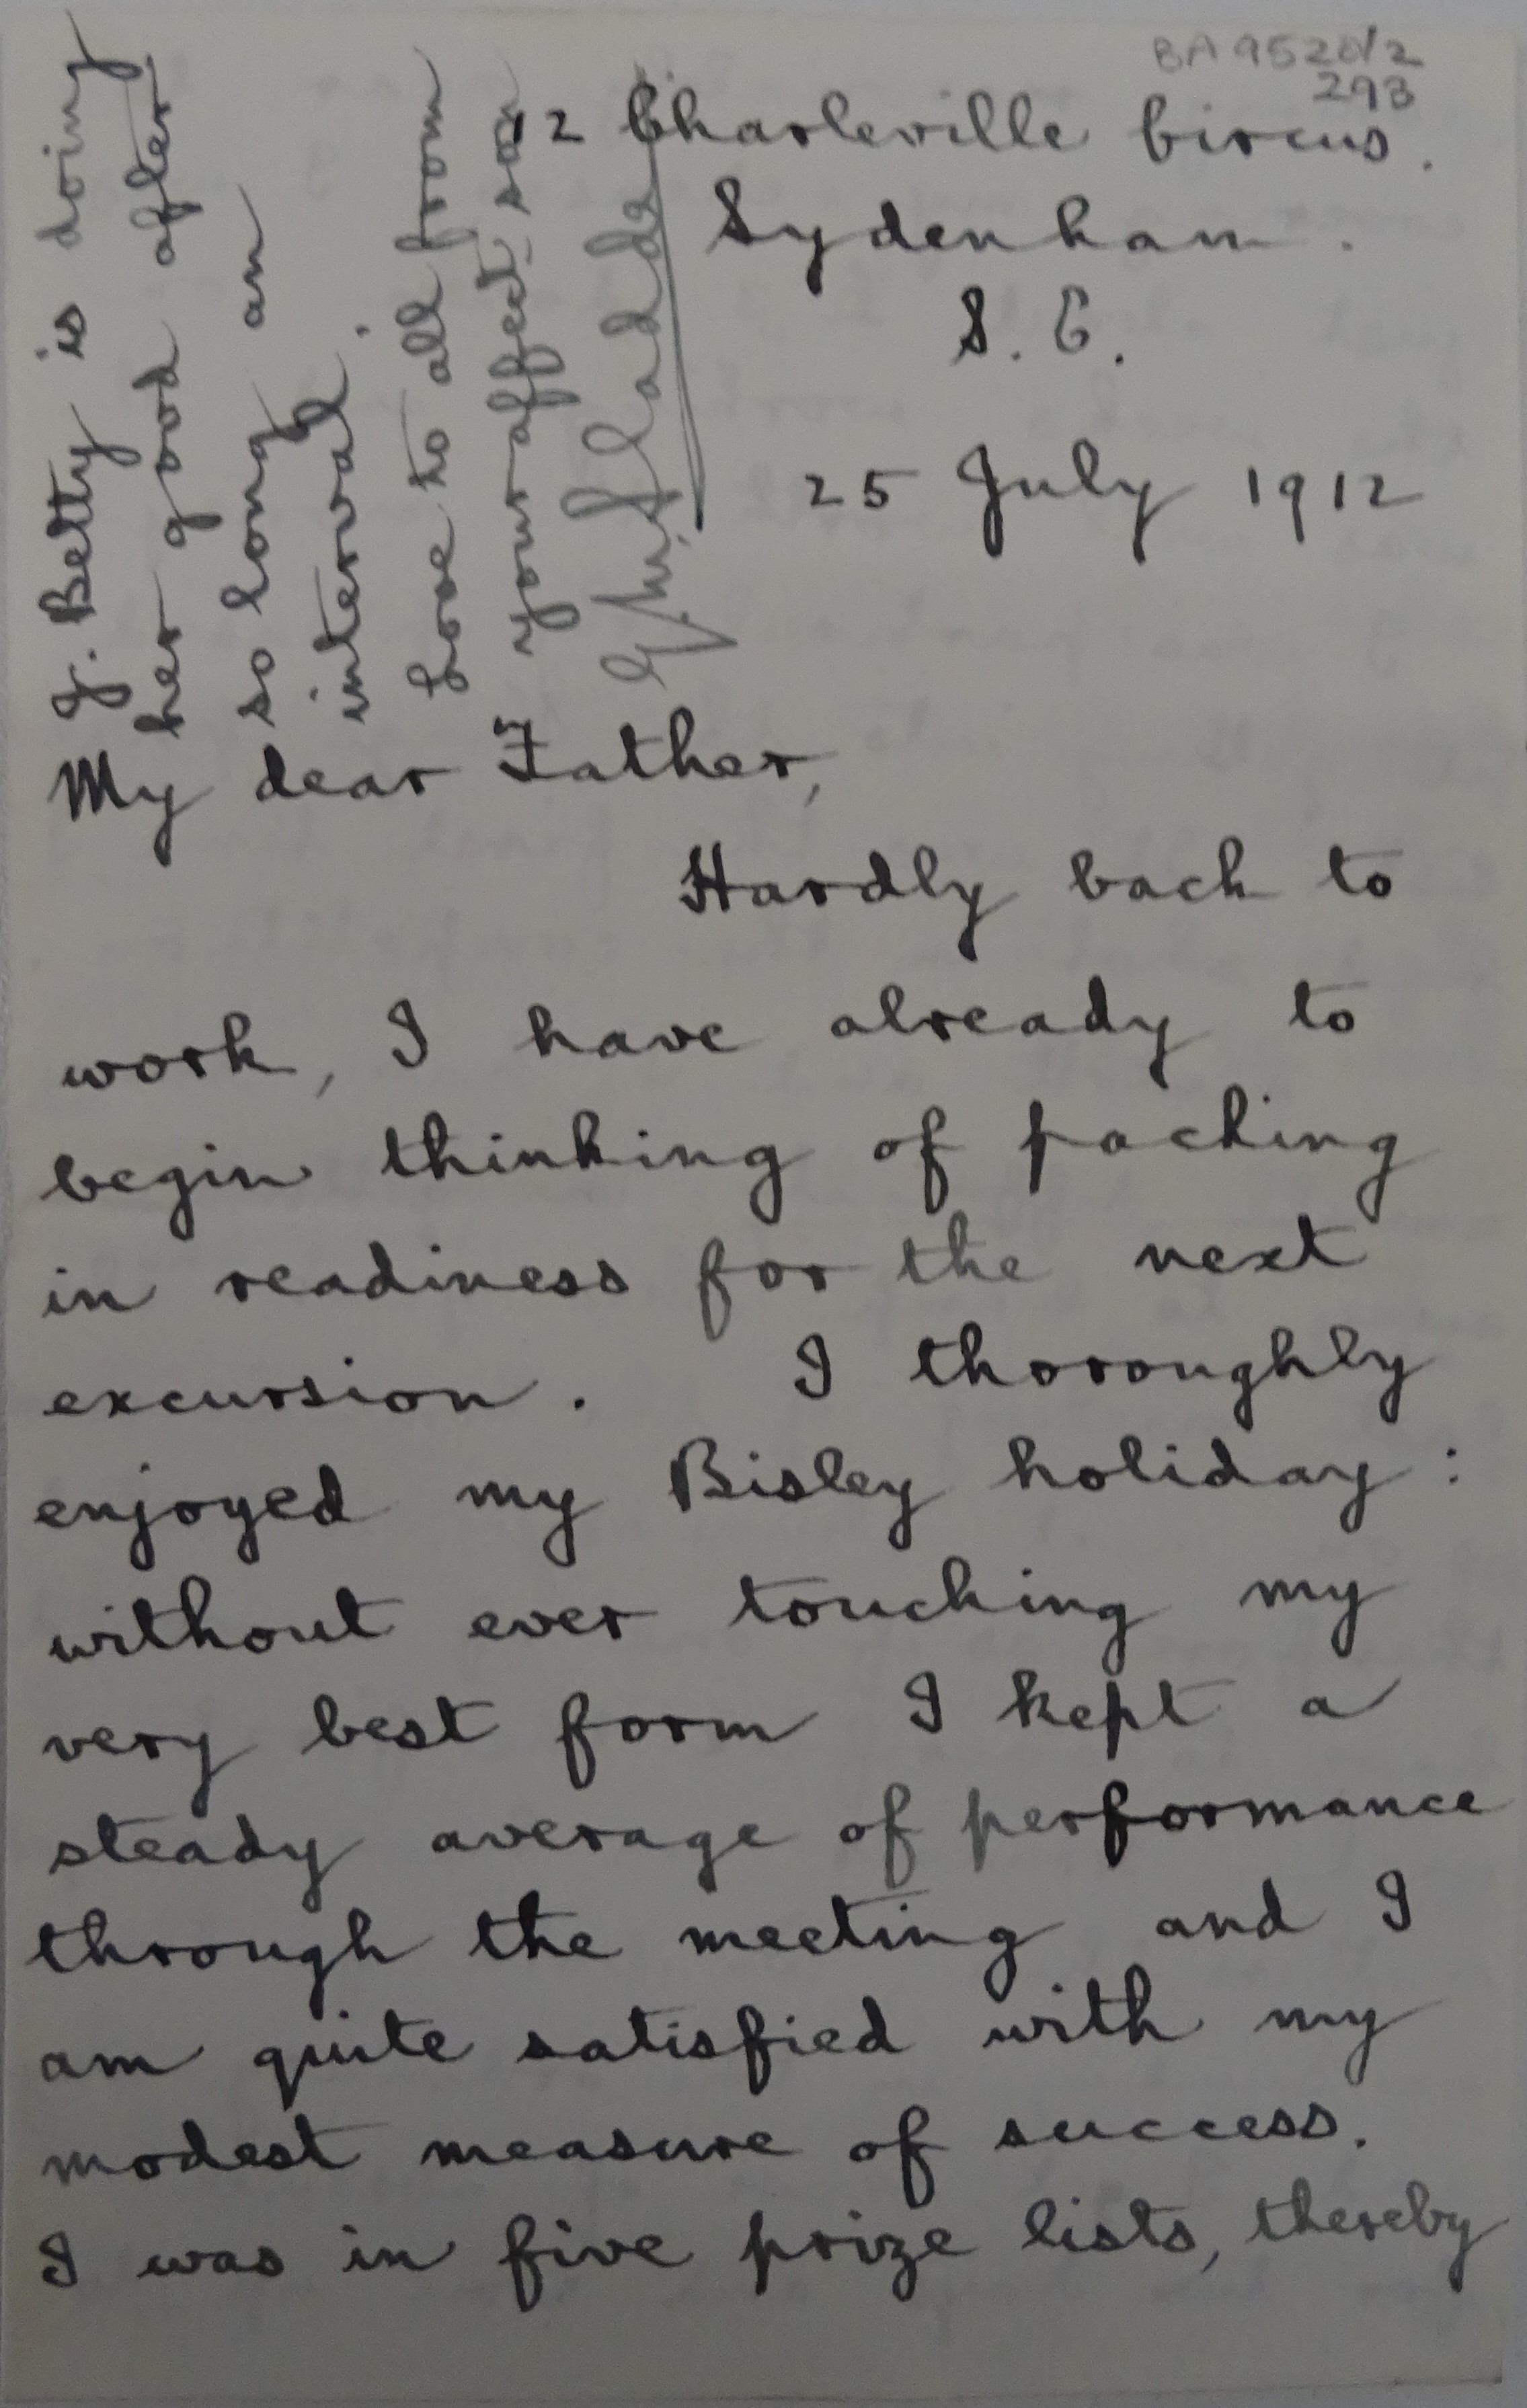 BA 9520/2
293
12 Charleville Circus.
Sydenham.
S. E.
25 July 1912
My dear Father,
Hardly back to
work, I have already to
begin thinking of packing
in readiness for the next
excursion. I thoroughly
enjoyed my Bisley holiday:
without ever touching my
very best form I kept a
steady average of performance
through the meeting and I
am quite satisfied with my
modest measure of success.
I was in five prize lists, thereby
J. Betty is doing
her good after
so long an
interval.
Love to all from
your affect. son